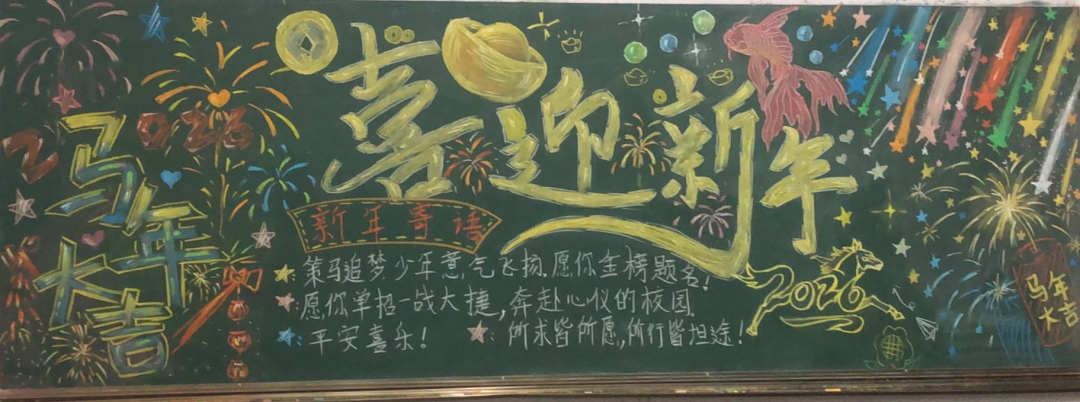 喜迎新年
2026
马年
大吉
新年寄语
策马追梦少年意气飞扬.愿你金榜题名!
:愿你单招一战大捷,奔赴心仪的校园.
:平安喜乐!
:所求皆所愿,所行皆坦途!
2026
马年
大吉